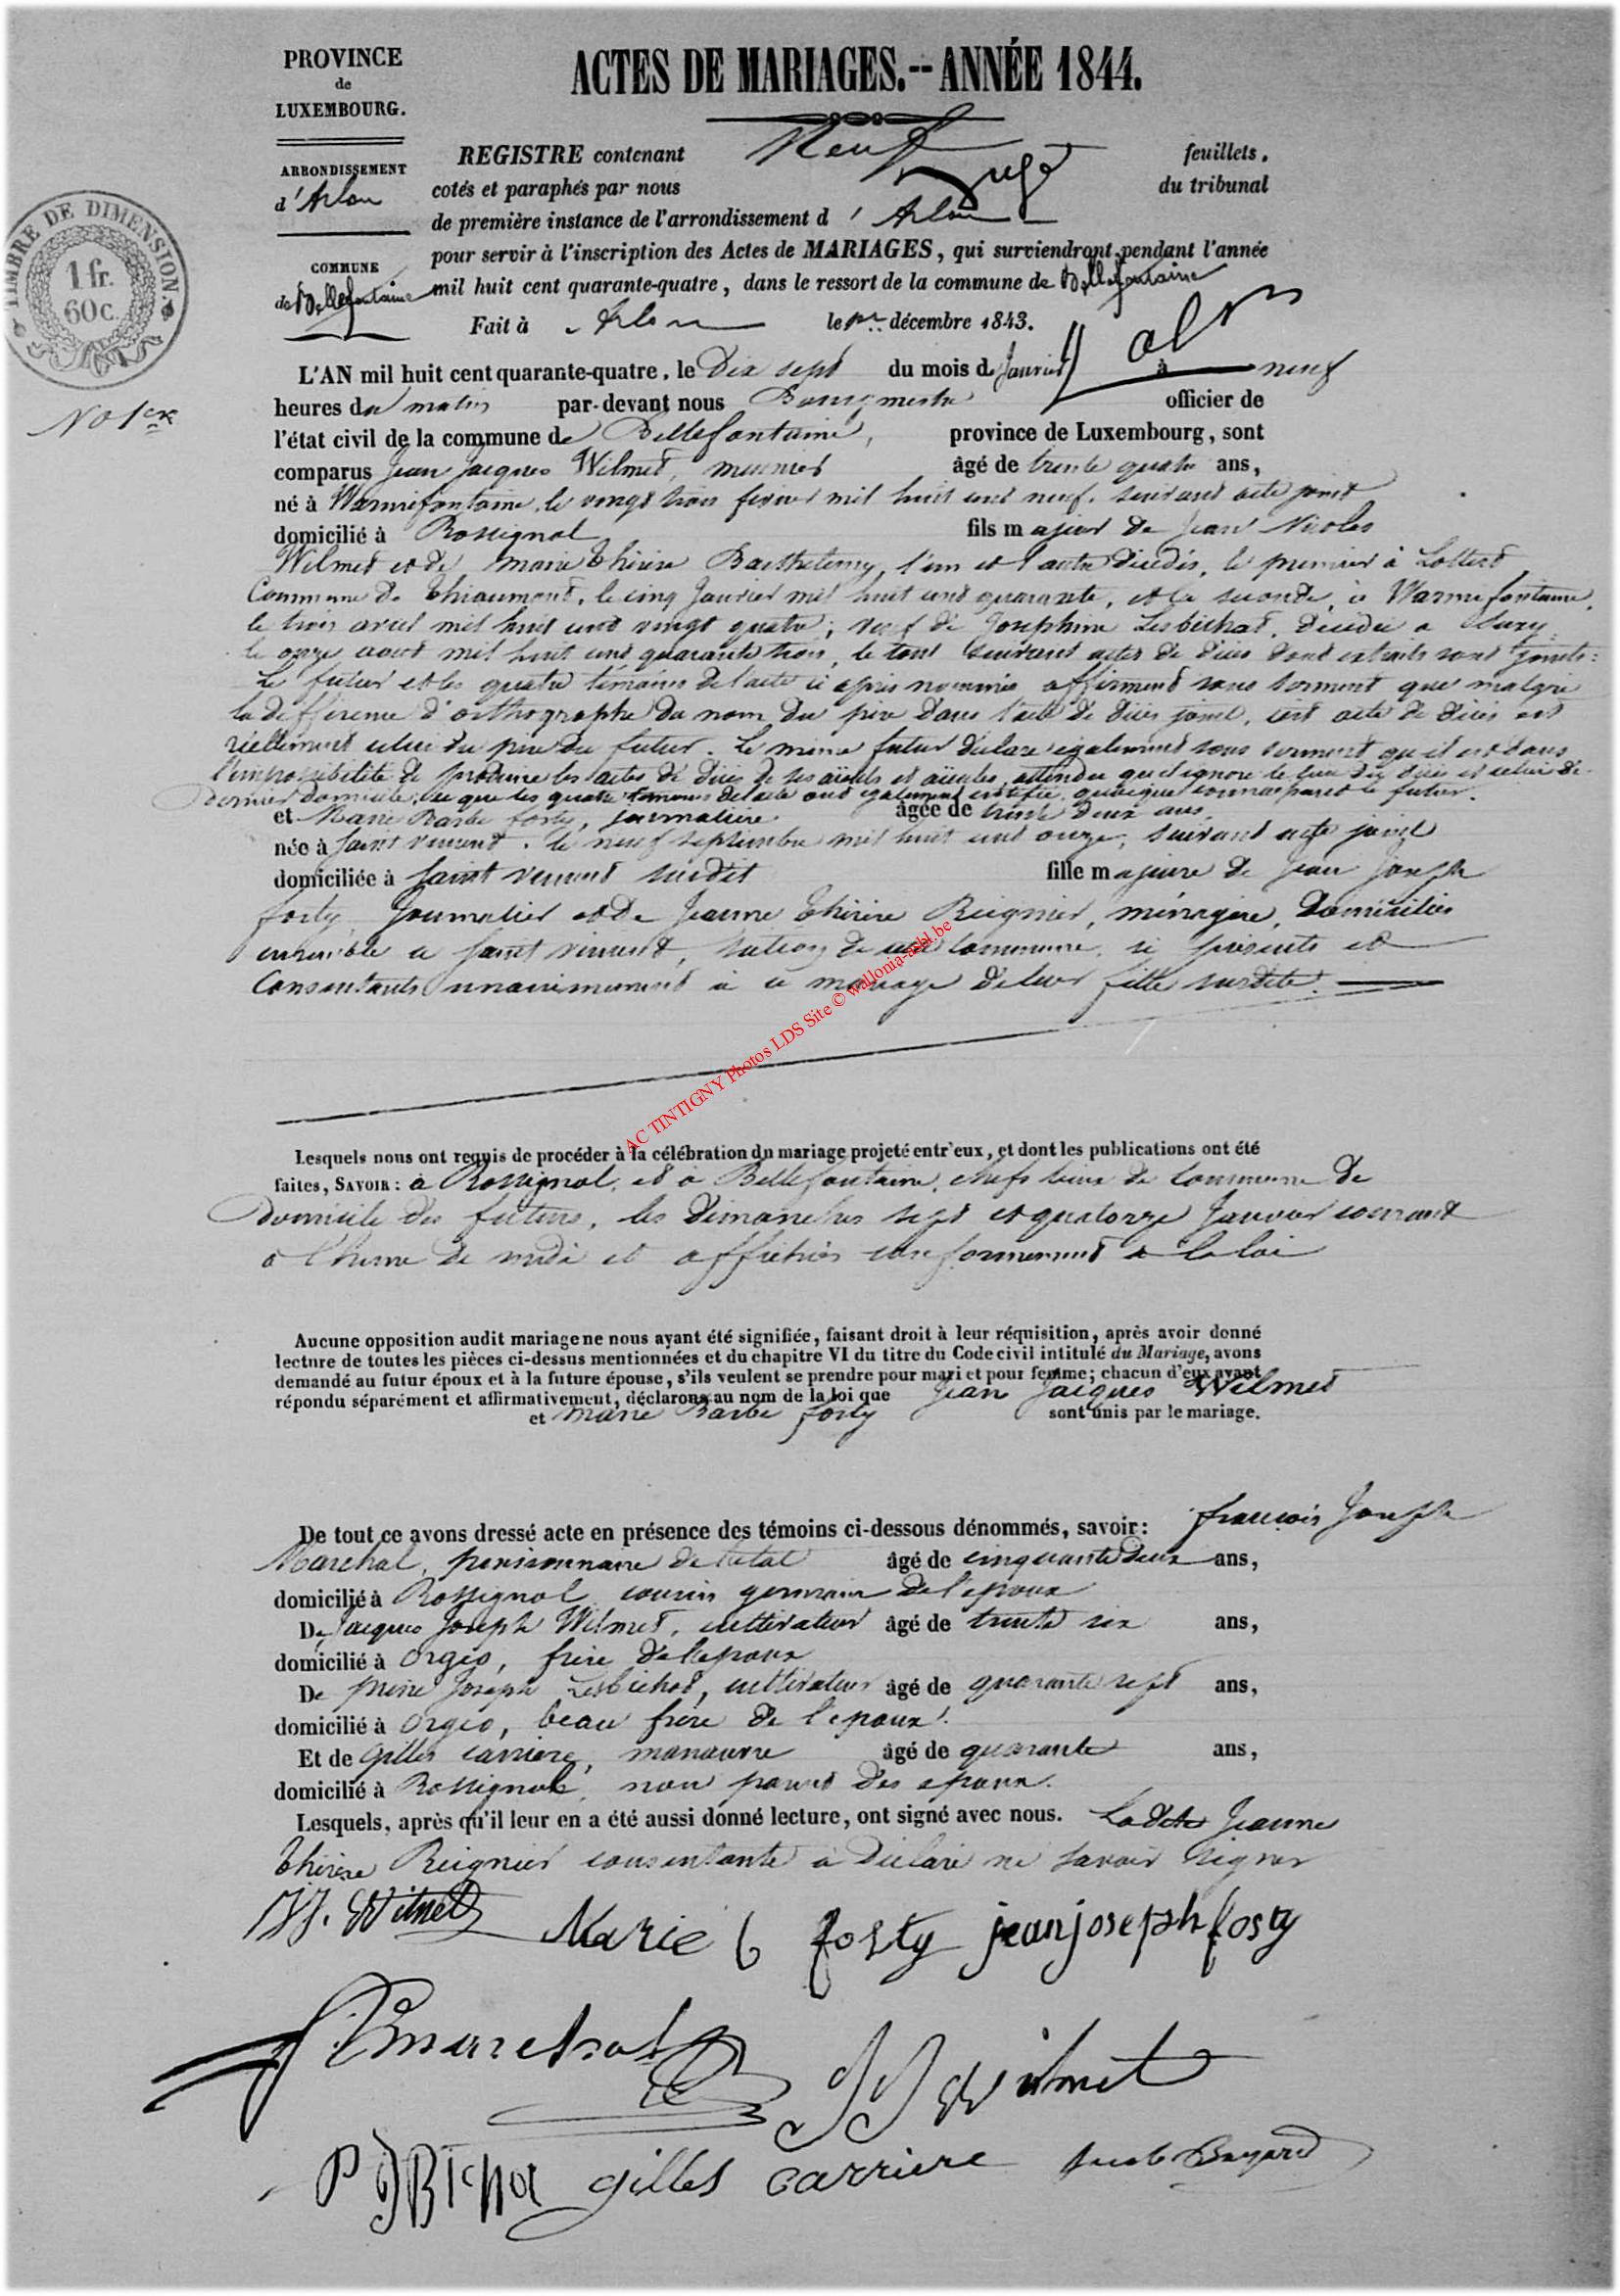 PROVINCE
de
LUXEMBOURG.
ARRONDISSEMENT
d'Arlon
COMMUNE
de Bellefontaine
TIMBRE DE DIMENSION.
1 fr.
60 c.
No 1er
ACTES DE MARIAGES.--ANNÉE 1844.
REGISTRE contenant Neuf feuillets.
cotés et paraphés par nous Juge du tribunal
de première instance de l'arrondissement d'Arlon
pour servir à l'inscription des Actes de MARIAGES, qui surviendront pendant l'année
mil huit cent quarante-quatre, dans le ressort de la commune de Bellefontaine
Fait à Arlon le 1er décembre 1843.
L'AN mil huit cent quarante-quatre, le Dix sept du mois de Janvier à neuf
heures du matin par-devant nous Bourgmestre officier de
l'état civil de la commune de Bellefontaine, province de Luxembourg, sont
comparus Jean Jacques Wilmet, meunier âgé de trente quatre ans,
né à Warmifontaine, le vingt trois fevrier mil huit cent neuf, suivant acte joint
domicilié à Rossignol fils majeur de Jean Nicolas
Wilmet et de Marie Thérèse Barthelemy, l'un et l'autre décédés, le premier à Lottert
Commune de Thiaumont, le cinq Janvier mil huit cent quarante, et la seconde, à Warmifontaine,
le trois avril mil huit cent vingt quatre; veuf de Josephine Lesbichat, décédée a Suxy
le onze aout mil huit cent quarante trois, le tout suivant actes de décès dont extraits sont joints:
Le futur et les quatre témoins de l'acte ci après nommés affirment sous serment que malgré
la différence d'orthographe du nom du père dans l'acte de décès joint, cet acte de décès est
réellement celui du père du futur. Le même futur déclare également sous serment qu'il est dans
l'impossibilité de produire les actes de décès de ses aïeuls et aïeules, attendu qu'il ignore le lieu du décès et celui de
dernier domicile, ce que les quatre témoins de l'acte ont également certifié, quoique connaissant le futur.
et Marie Barbe Fosty, journalière âgée de trente deux ans
née à Saint Vincent, le neuf septembre mil huit cent onze, suivant acte joint
domiciliée à Saint Vincent susdit fille majeure de Jean Joseph
Fosty, Journalier et de Jeanne Thérèse Reignier, ménagère, domiciliés
ensemble a Saint Vincent, section de cette commune, ci présents et
Consentants unanimement à ce mariage de leur fille susdite.
AC TINTIGNY Photos LDS Site © wallonia-asbl.be
Lesquels nous ont requis de procéder à la célébration du mariage projeté entr'eux, et dont les publications ont été
faites, SAVOIR: à Rossignol, et à Bellefontaine, chefs lieux de Commune de
domicile des futurs, les dimanches sept et quatorze Janvier courant
a l'heure de midi et affichées conformement a la loi
Aucune opposition audit mariage ne nous ayant été signifiée, faisant droit à leur réquisition, après avoir donné
lecture de toutes les pièces ci-dessus mentionnées et du chapitre VI du titre du Code civil intitulé du Mariage, avons
demandé au futur époux et à la future épouse, s'ils veulent se prendre pour mari et pour femme; chacun d'eux ayant
répondu séparément et affirmativement, déclarons au nom de la loi que Jean Jacques Wilmet
et Marie Barbe Fosty sont unis par le mariage.
De tout ce avons dressé acte en présence des témoins ci-dessous dénommés, savoir: François Joseph
Marchal, pensionnaire de l'état âgé de cinquante deux ans,
domicilié à Rossignol cousin germain de l'epoux
De Jacques Joseph Wilmet, cultivateur âgé de trente six ans,
domicilié à Orgeo, frère de l'epoux
De pierre Joseph Lesbichat, cultivateur âgé de quarante sept ans,
domicilié à Orgeo, beau frère de l'epoux.
Et de Gilles Carrière, manœuvre âgé de quarante ans,
domicilié à Rossignol, non parent des epoux.
Lesquels, après qu'il leur en a été aussi donné lecture, ont signé avec nous. La dite Jeanne
Thérèse Reignier consentante a déclaré ne savoir signer
JJ. Wilmet Marie b fosty jean joseph fosty
Fmarchal JJ Wilmet
gilles carriere